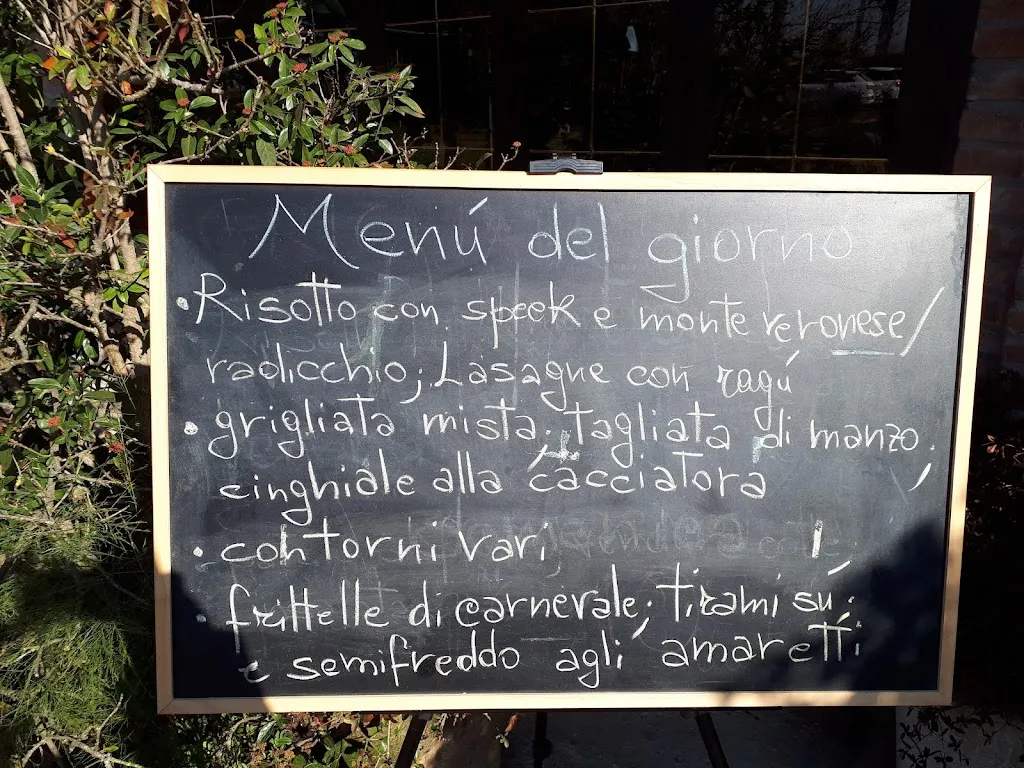 Menú del giorno
• Risotto con speek e monte veronese/
radicchio; Lasagne con ragú
• grigliata mista. tagliata di manzo.
cinghiale alla cacciatora
• contorni vari
• frittelle di carnevale; tirami sú;
e semifreddo agli amaretti